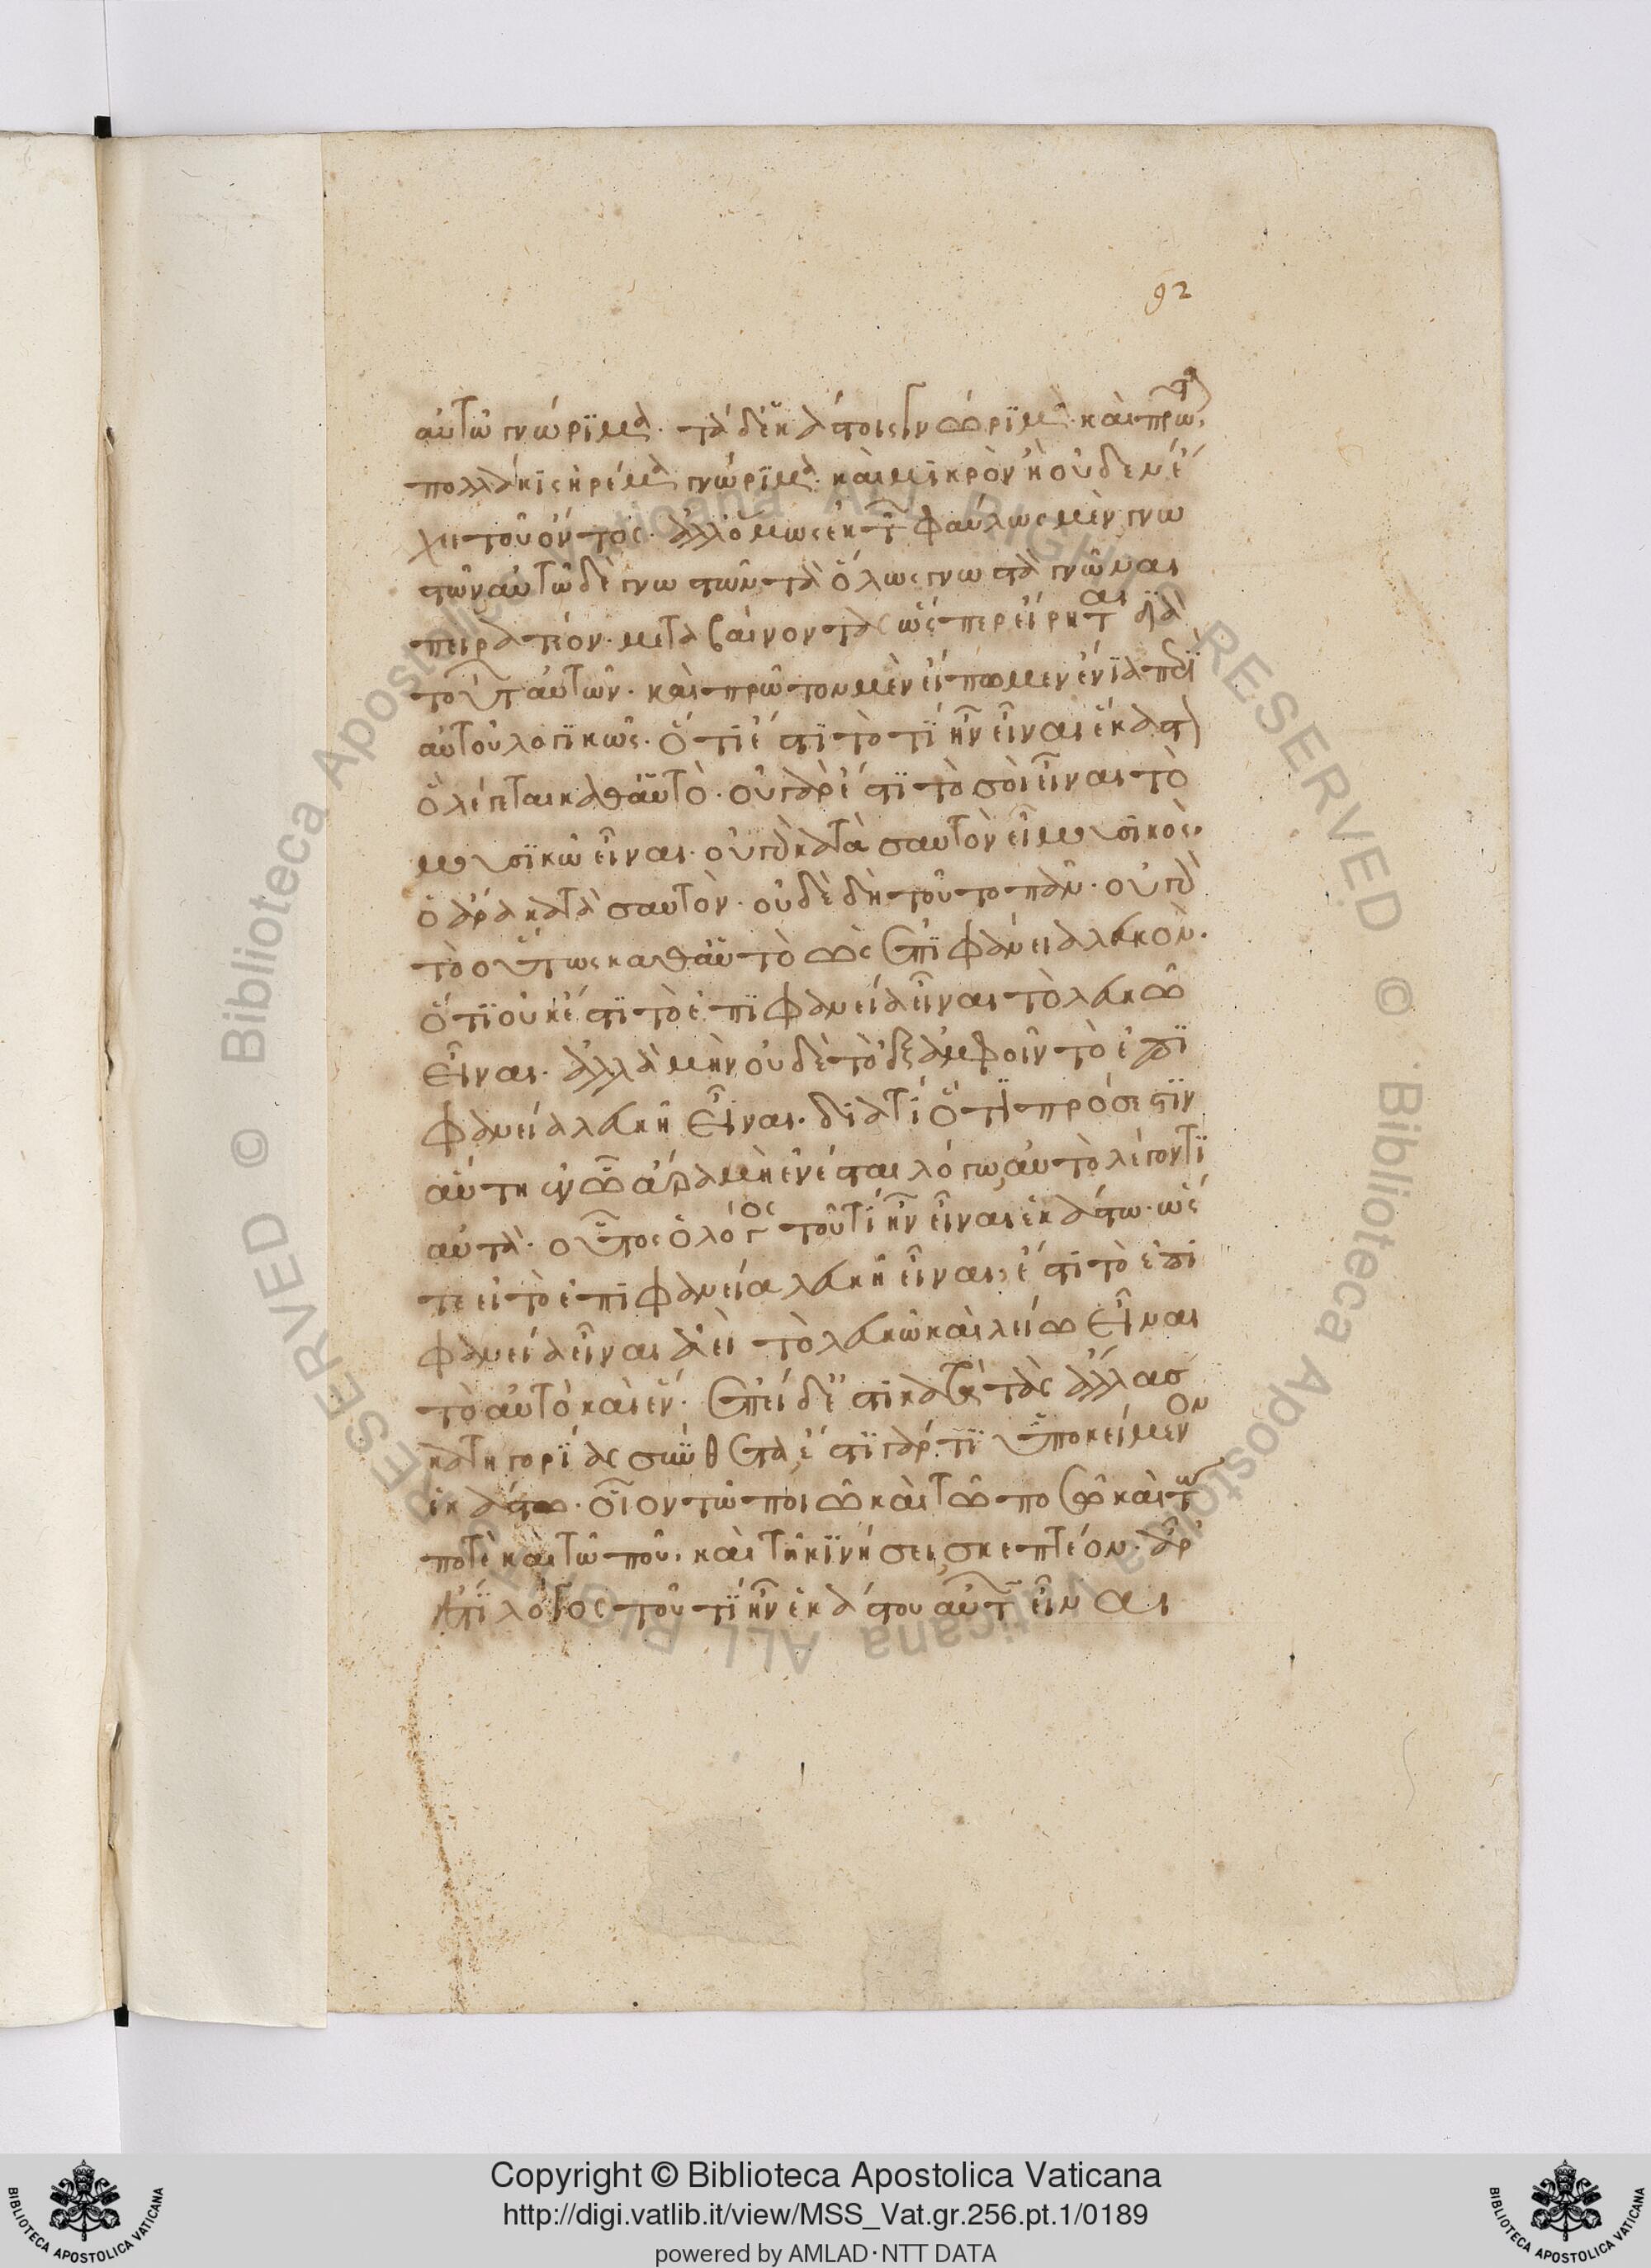 92
αὐτῶ γνώριμα. τὰ δ' ἑκάστοις γνώριμα καὶ πρῶτα
πολλάκις ἠρέμα γνώριμα. καὶ μικρὸν ἢ οὐδὲν ἔ
χει τοῦ ὄντος. ἀλλ' ὅμως ἐκ τῶν φαύλως μὲν γνω
στῶν αὐτῶ δὲ γνωστῶν τὰ ὅλως γνωστὰ γνῶναι
πειρατέον. μεταβαίνοντας ὥσπερ εἴρηται διὰ
τούτ αὐτῶν. καὶ πρῶτον μὲν εἴπωμεν ἔνια περὶ
αὐτοῦ λογικῶς. ὅτι ἐστὶ τὸ τί ἦν εἶναι ἕκαστ
ὃ λέγεται καθ' αὑτό. οὐ γάρ ἐστι τὸ σοὶ εἶναι τὸ
μουσικῶ εἶναι. οὐ γὰρ κατὰ σαυτὸν εἶ μουσικὸς.
ὃ ἄρα κατὰ σαυτὸν. οὐδὲ δὴ τοῦτο πᾶν. οὐ γὰρ
τὸ οὕτως καθ' αὑτὸ ὡς ἐπιφάνεια λευκόν.
ὅτι οὐκ ἔστι τὸ ἐπιφανεία εἶναι τὸ λευκῶ
εἶναι. ἀλλὰ μὴν οὐδὲ τὸ ἐξ ἀμφοῖν τὸ ἐπι
φανεία λευκῆ εἶναι. διατί ὅτι πρόσεστιν
αὕτη ἐν ᾧ ἄρα μὴ ἐνέσται λόγω, αὐτὸ λέγοντι
αὐτὰ. οὗτος ὁ λόγος τοῦ τί ἦν εἶναι ἑκάστω. ὥσ
τε εἰ τὸ ἐπιφανεία λευκῆ εἶναι, ἐστὶ τὸ ἐπι
φανεία εἶναι ἀεὶ τὸ λευκῶ καὶ λείω εἶναι
τὸ αὐτὸ καὶ ἕν. ἐπεὶ δ' ἔστι κατὰ τὰς ἄλλασ
κατηγορίας σύνθετα, ἔστι γάρ τι ὑποκείμενον
ἑκάστω. οἷον τῶ ποιῶ καὶ τῶ ποσῶ καὶ τῶ
ποτὲ καὶ τῶ ποῦ, καὶ τῆ κινήσει, σκεπτέον. ἆρ'
ἔστι λόγος τοῦ τί ἦν ἑκάστου αὐτῶν εἶναι
Copyright © Biblioteca Apostolica Vaticana
http://digi.vatlib.it/view/MSS_Vat.gr.256.pt.1/0189
powered by AMLAD·NTT DATA